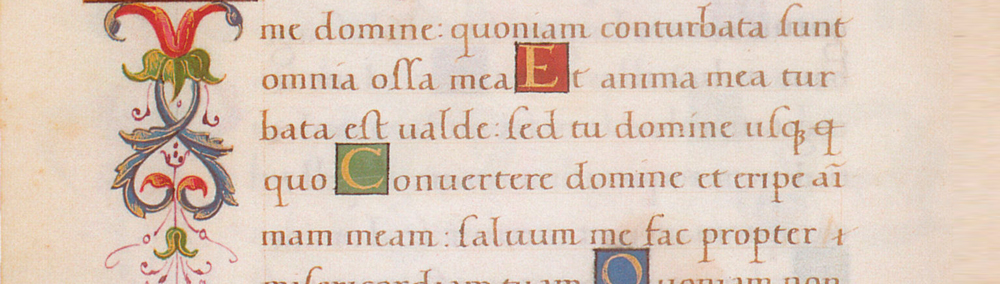 me domine: quoniam conturbata ſunt
omnia oſſa mea Et anima mea tur
bata eſt ualde: ſed tu domine uſqꝫ
quo Conuertere domine et eripe aĩ
mam meam: ſaluum me fac propter
miſericordiam tuam Quoniam non